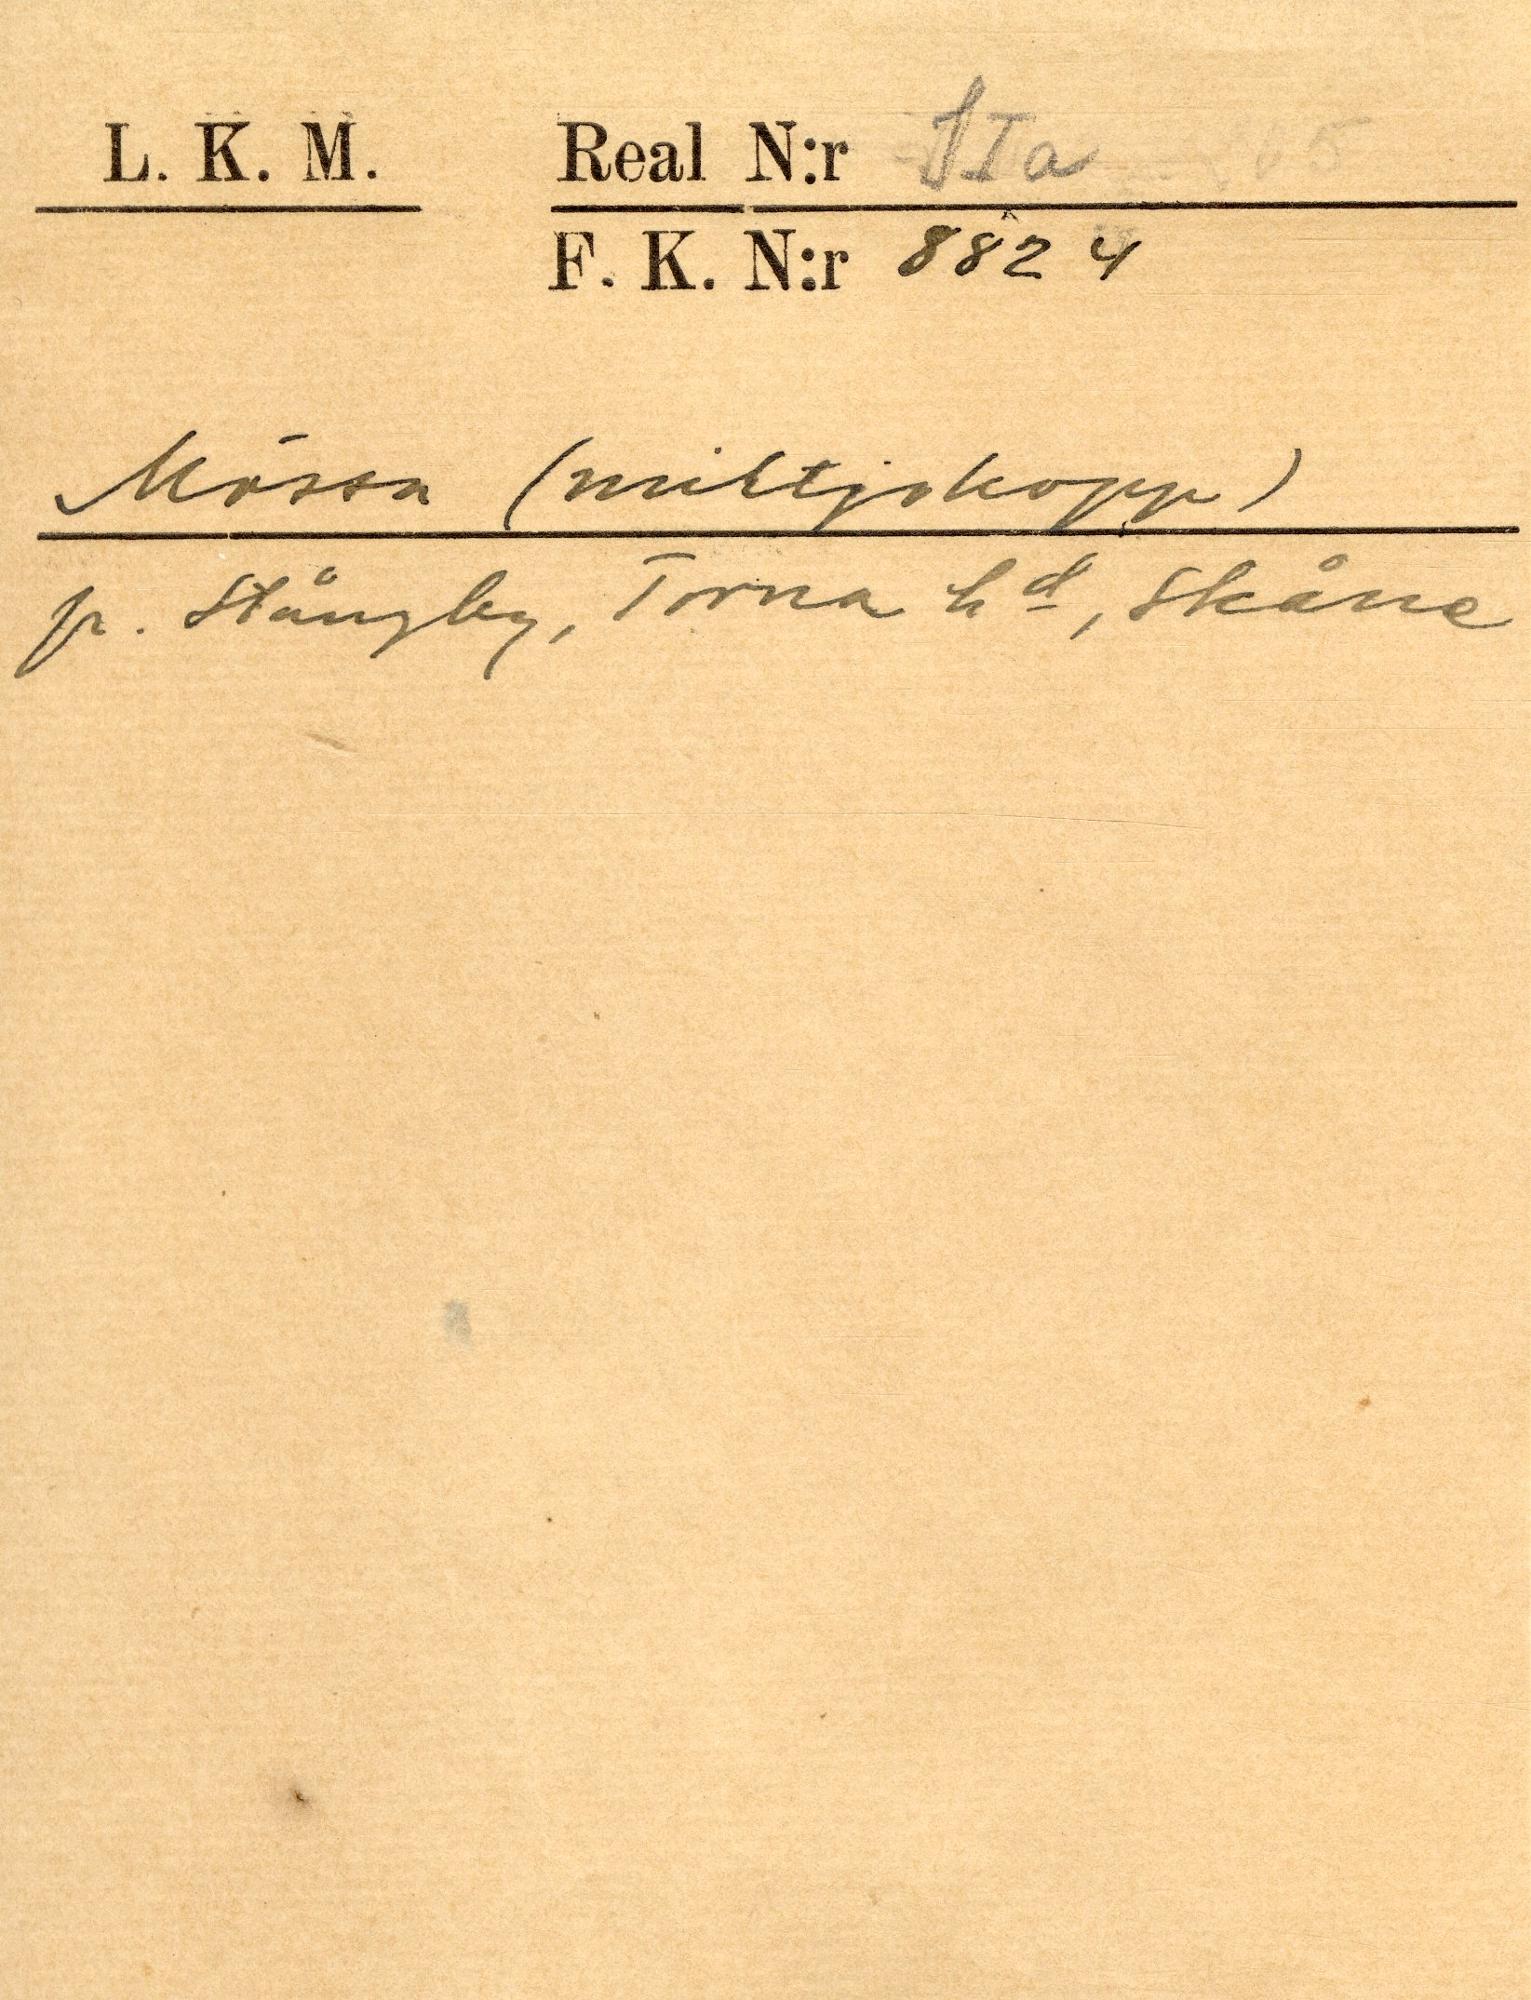 L. K. M. Real N:r IIa
F. K. N:r 8824
Mössa (
fr. Stångby, Torna hd, Skåne